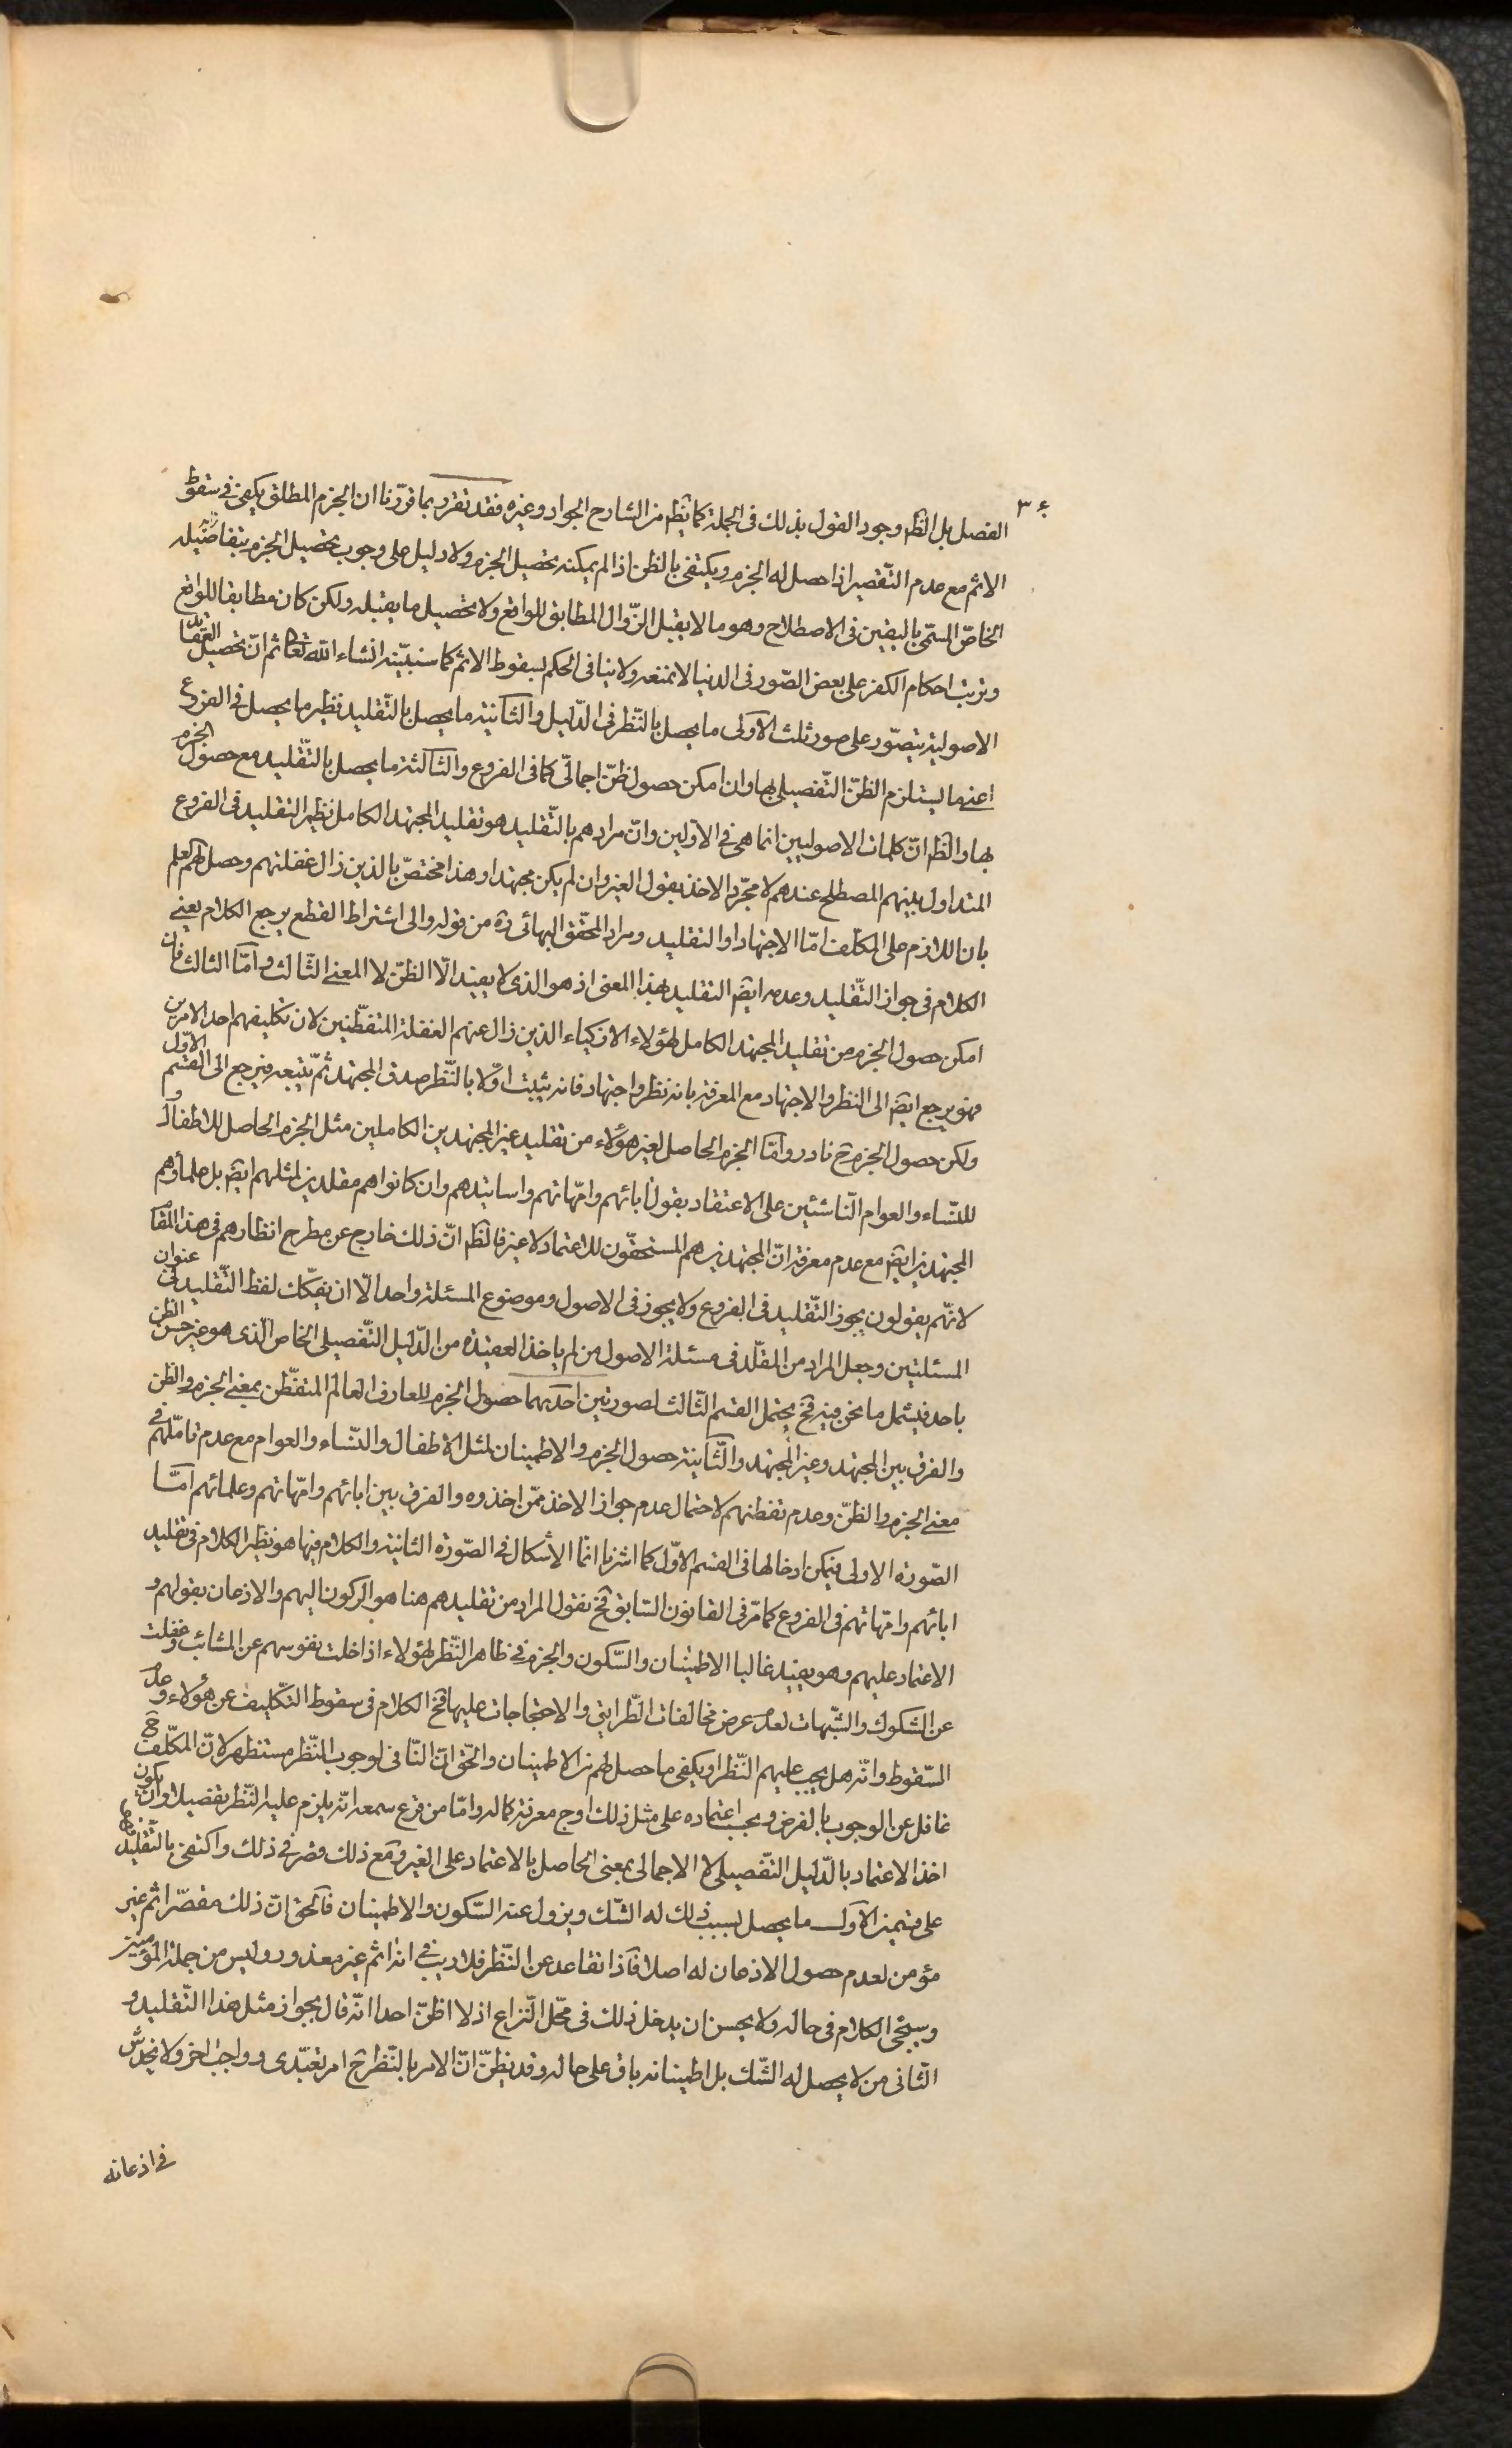 ٣٤
الفصل بل الظ وجود القول بذلك فى الجملة كما يظ من الشارح الجواد وغيره فقد تقرر بما قررنا ان الجزم المطلق يكفى فى سقوط
الاثم مع عدم التّقصير اذا حصل له الجزم ويكتفى بالظن اذا لم يمكنه تحصيل الجزم ولا دليل على وجوب تحصيل الجزم بتفاصيله
الخاصّ المسمّى باليقين فى الاصطلاح وهو ما لا يقبل الزّوال المطابق للواقع ولا تحصيل ما يقبله ولكن كان مطابقا للواقع
وترتب احكام الكفر على بعض الصّور فى الدنيا لا نمنعه ولا ينافى الحكم بسقوط الاثم كما سنبيّنه انشاء الله تعا ثم انّ تحصيل العقايد
الاصولية يتصّور على صور ثلث الاولى ما يحصل بالنّظر فى الدّليل والثانية ما يحصل بالتّقليد نظير ما يحصل فى الفروع
اعنى ما يستلزم الظنّ التّفصيلى بها وان امكن حصول ظنّ اجمالّى كما فى الفروع والثالثة ما يحصل بالتّقليد مع حصول الجزم
بها والظ انّ كلمات الاصوليين انما هى فى الاوّلين وانّ مرادهم بالتّقليد هو تقليد المجتهد الكامل نظير التقليد فى الفروع
المتداول بينهم المصطلح عندهم لا مجّرد الاخذ بقول الغير وان لم يكن مجتهدا وهذا مختصّ بالذين زال غفلتهم وحصل لهم العلم
بان اللازم على المكلف امّا الاجتهاد او التقليد ومراد المحّقق البهائى ره من قوله والى اشتراط القطع يرجع الكلام يعنى
الكلام فى جواز التّقليد وعدمه ايض التقليد بهذا المعنى اذ هو الذى لا يفيد الّا الظنّ لا المعنى الثّالث وامّا الثالث فان
امكن حصول الجزم من تقليد المجتهد الكامل لهؤلاء الازكياء الذين زال عنهم الغفلة المتفطّنين لان تكليفهم احد الامرين
فهو يرجع ايض الى النظر والاجتهاد مع المعرفة بانه نظر واجتهاد فانه يثبت اوّلا بالنّظر صدق المجتهد ثمّ يتبعه فيرجع الى القسم الاول
ولكن حصول الجزم ح نادر وامّا الجزم الحاصل لغير هؤلاء من تقليد غير المجتهدين الكاملين مثل الجزم الحاصل للاطفال و
للنّساء والعوام النّاشئين على الاعتقاد بقول ابائهم وامّهاتهم واساتيدهم وان كانوا هم مقلدين لمثلهم ايض بل علماؤهم
المجتهدين ايض مع عدم معرفة انّ المجتهدين هم المستحقّون للاعتماد لا غير فالظ انّ ذلك خارج عن مطرح انظارهم فى هذا المقام
لانّهم يقولون يجوز التّقليد فى الفروع ولا يجوز فى الاصول وموضوع المسئلة واحد الّا ان يفكّك لفظ التّقليد فى عنوان
المسئلتين وجعل المراد من المقلّد فى مسئلة الاصول من لم ياخذ العقيدة من الدّليل التّفصيلى الخاص الذى هو غير حسن الظن
باحد فيشمل ما نحن فيه فح يحتمل القسم الثّالث لصورتين احديهما حصول الجزم للعارف العالم المتفطّن بمعنى الجزم والظن
والفرق بين المجتهد وغير المجتهد والثّانية حصول الجزم والاطمينان لمثل الاطفال والنّساء والعوام مع عدم تاملهم فى
معنى الجزم والظنّ وعدم تفطنهم لاحتمال عدم جواز الاخذ ممّن اخذوه والفرق بين ابائهم وامّهاتهم وعلمائهم امّا
الصّورة الاولى فيمكن ادخالها فى القسم الاوّل كما اشرنا انما الأشكال فى الصّورة الثانية والكلام فيها هو نظير الكلام فى تقليد
ابائهم وامّهاتهم فى الفروع كما مرّ فى القانون السّابق فح نقول المراد من تقليدهم هنا هو الركون اليهم والاذعان بقولهم و
الاعتماد عليهم وهو يفيد غالبا الاطمينان والسّكون والجزم فى ظاهر النّظر لهؤلاء اذا خلت نفوسهم عن الشائب وغفلت
عن الشكوك والشّبهات لعدم عرض مخالفات الطّرايق والاحتجاجات عليها فح الكلام فى سقوط التّكليف عن هؤلاء وعدم
السّقوط وانّه هل يجب عليهم النّظر او يكفى ما حصل لهم من الاطمينان والحّق انّ النّافى لوجوب النّظر مستظهر لانّ المكلّف ح
غافل عن الوجوب بالفرض ويجب اعتماده على مثل ذلك اوج معرفة كماله وامّا من قرع سمعه انّه يلزم عليه النّظر تفصيلا وان يكون
اخذ الاعتماد بالدّليل التّفصيلى لا الاجمالى بمعنى الحاصل بالاعتماد على الغير ومع ذلك قصّر فى ذلك واكتفى بالتّقليد فهم
على قسمين الاول ما يحصل بسبب ذلك له الشّك ويزول عنه السّكون والاطمينان فالحق انّ ذلك مقصّر اثم غير
مؤمن لعدم حصول الاذعان له اصلا فاذا تقاعد عن النّظر فلا ريب فى انه اثم غير معذور وليس من جملة المؤمنين
وسيجئ الكلام فى حاله ولا يحسن ان يدخل ذلك فى محّل النّزاع اذ لا اظنّ احدا انّه قال بجواز مثل هذا التّقليد و
الثّانى من لا يحصل له الشّك بل اطمينانه باق على حاله وقد يظنّ انّ الامر بالنّظر ح امر تعبّدى وواجب اخر ولا يخدش
فى اذعانه